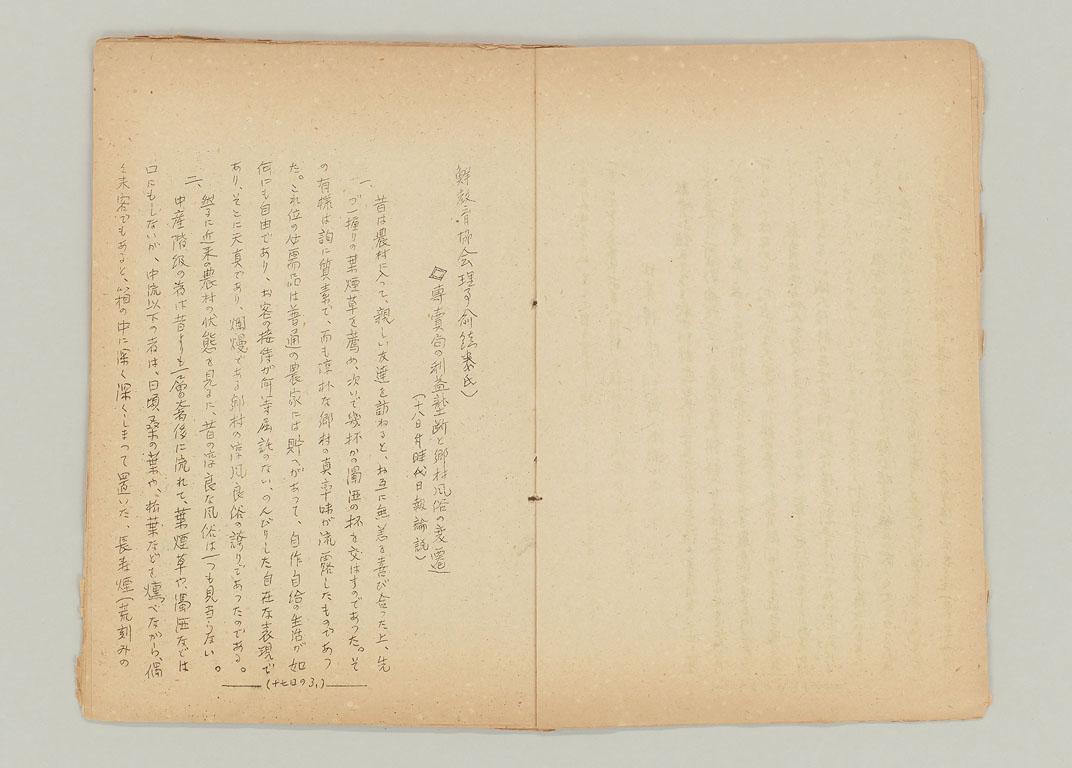 鮮教育協会理事俞鎮泰氏)
◇専賣局の利益壟断と郷村風俗の変遷
(十八日付時代日報論説)
一、昔は農村に入って、親しい友達を訪ねると、お互に無恙を喜び合った上、先
づ一握りの葉煙草を薦め、次いで幾杯かの濁酒の杯を交はすのであった。そ
の有様は誠に質素で、而も淳朴な郷村の真味が流露したものであっ
た。これ位の必需品は普通の農家には貯へがあって、自作自給の生活が如
何にも自由であり、お客の接待が何等屈託のない、のんびりした自在な表現で
あり、そこに天真であり、爛熳である郷村の淳風良俗の誇りであったのである。
然るに近来の農村の状態を見るに、昔の淳良な風俗は一つも見当らない。
二、中産階級の者は昔よりも一層奢侈に流れて、葉煙草や、濁酒などは
口にもしないが、中流以下の者は、日頃桑の葉や、枯葉などを燻べながら、偶
々来客でもあると、箱の中に深く深くしまって置いた、長寿煙(荒刻みの
(十七日の3)